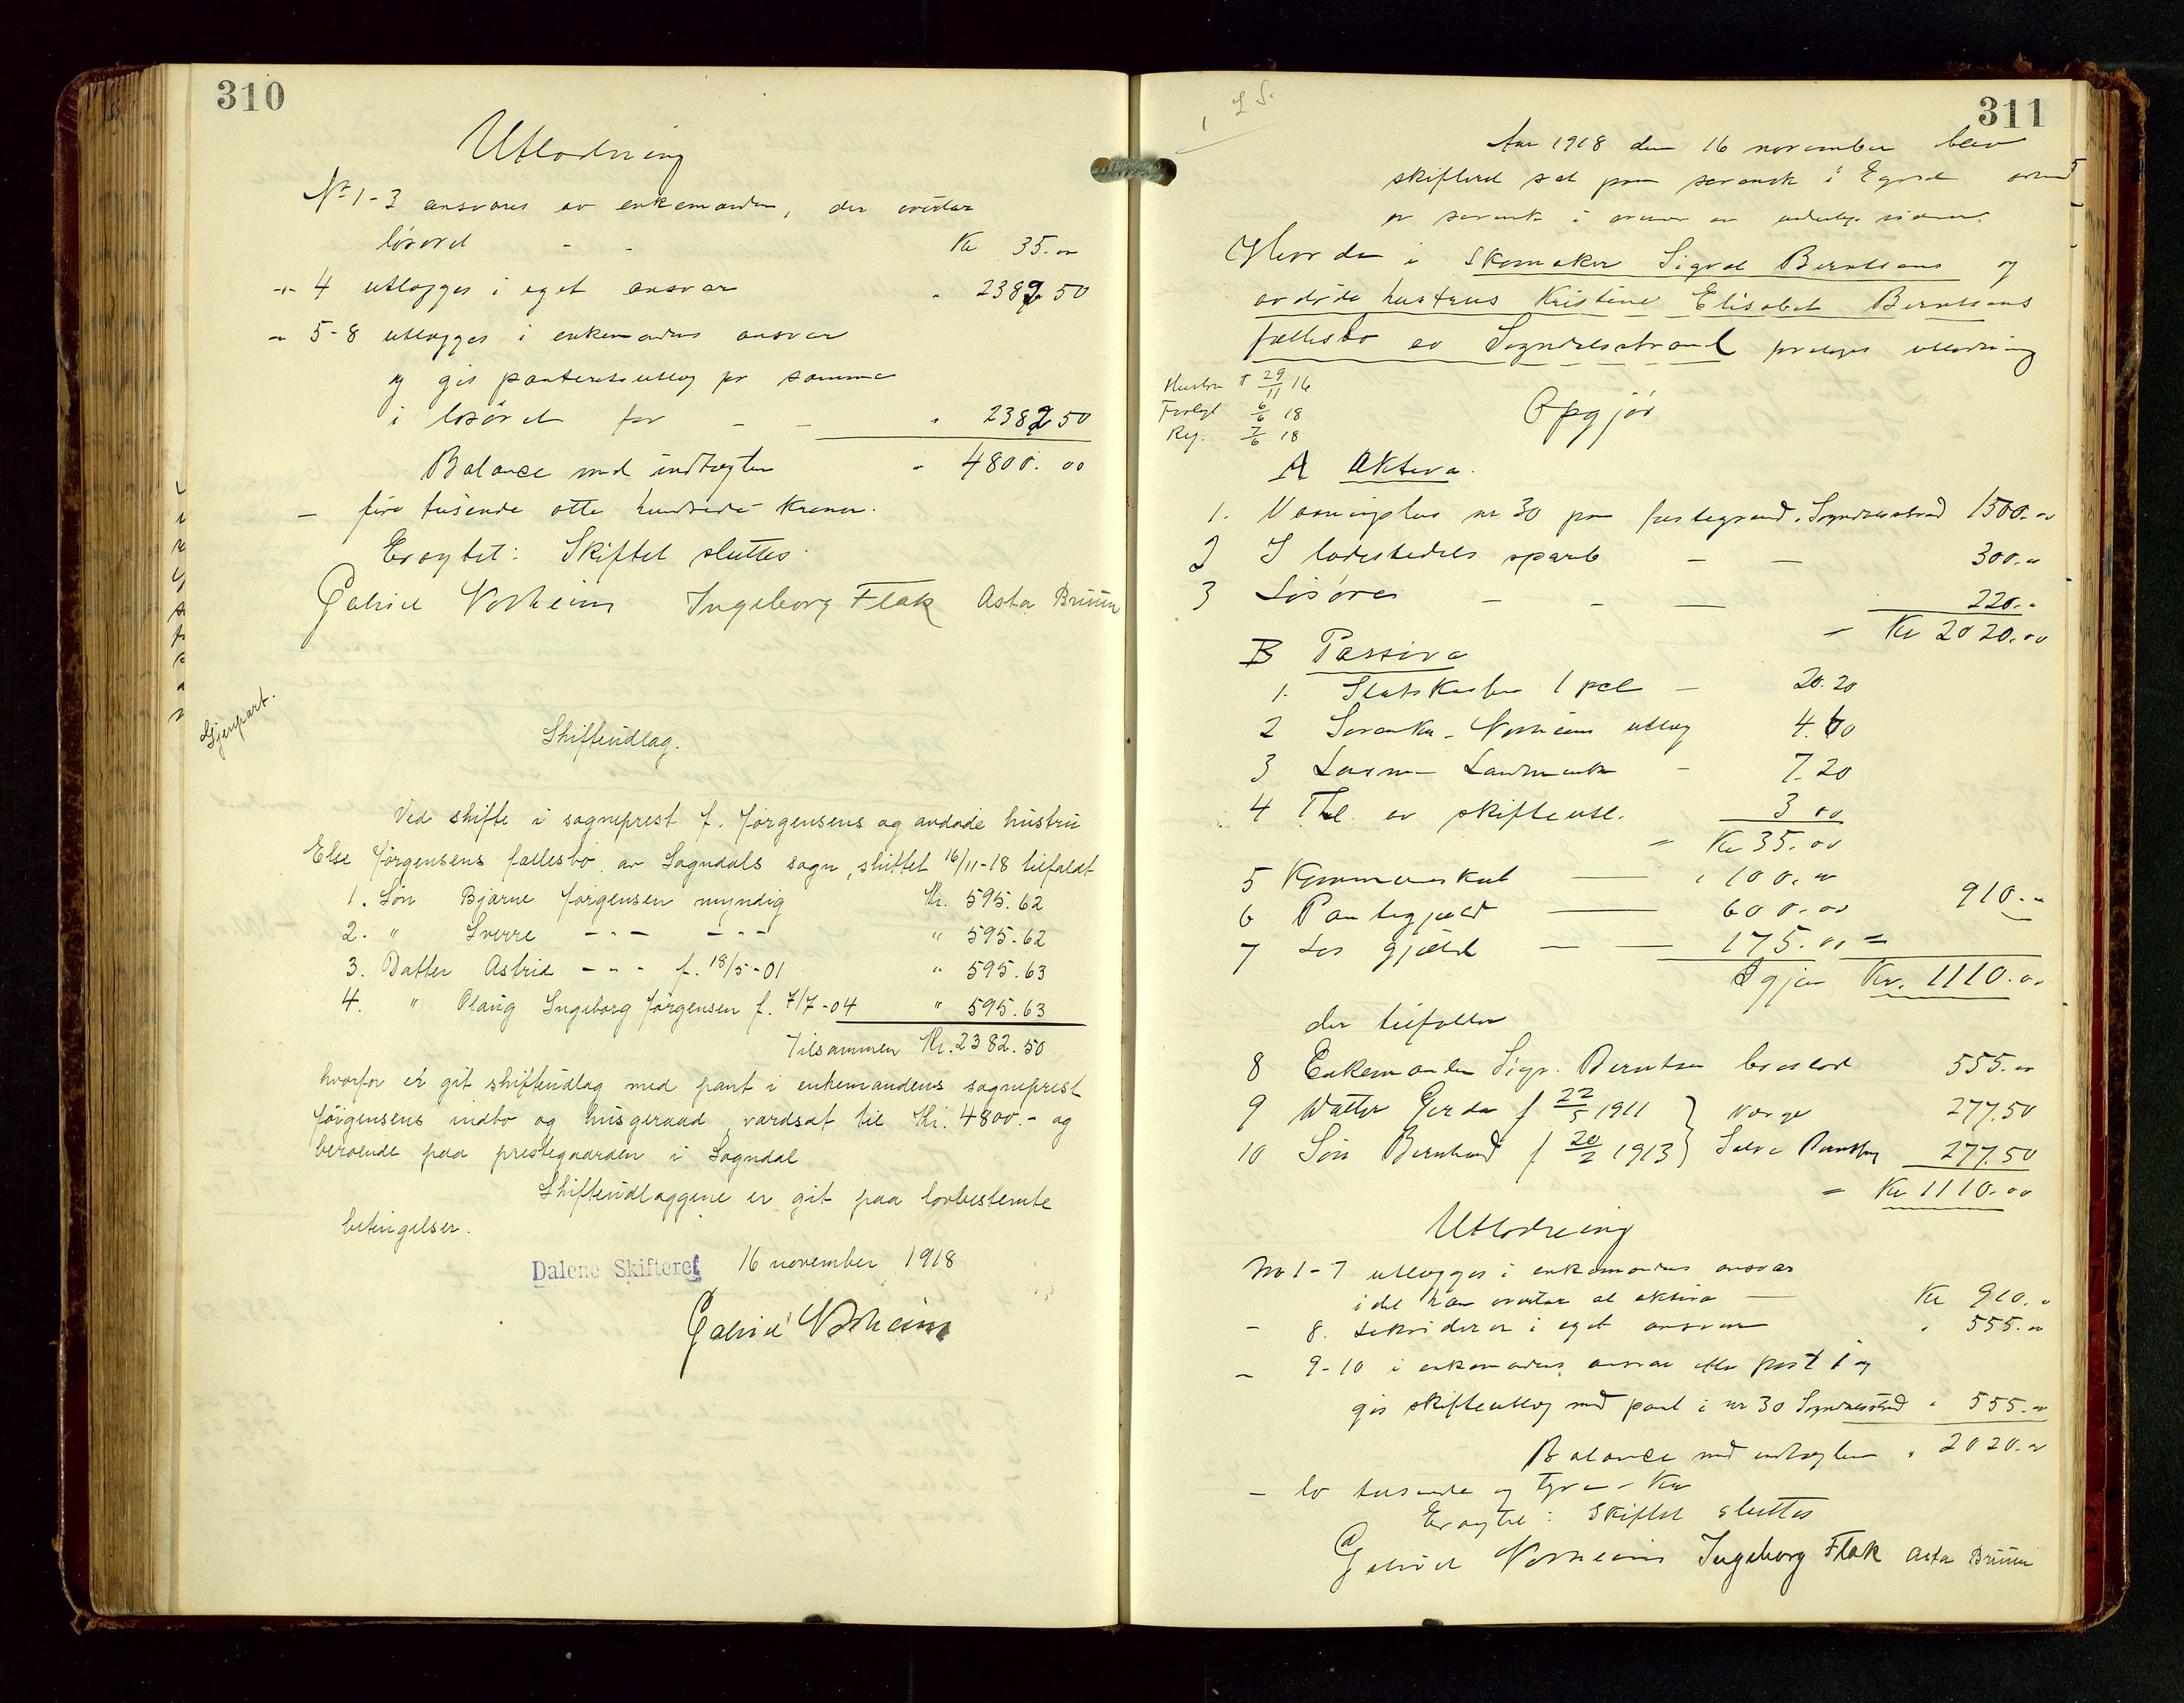 310
Utlodning
No 1-3 ansvares av enkemanden, der overtar
løsøret - - Kr 35.00
-"- 4 utlægges i eget ansvar " 2382 50
- 5-8 utlægges i enkemandens ansvar
og gis panteretsutlæg for samme
i løsøret for - - " 2382 50
Balance med indtægten " 4800.00
- fire tusende otte hundrede kroner.
Eragtet: Skiftet sluttes.
Gabriel Vosheim Ingeborg Flak Asta Bruun
Gjenpart.
Skifteudlag.
Ved skifte i sogneprest J. Jørgensens og avdøde hustru
Else Jørgensens fællesbo av Sogndals sogn, sluttet 16/11-18 tilfaldt
1. Søn Bjarne Jørgensen myndig Kr. 595.62
2. " Sverre -"- -"- " 595.62
3. Datter Astrid -"- f. 18/5-01 " 595.63
4. " Olaug Ingeborg Jørgensen f. 7/7-04 " 595.63
Tilsammen Kr. 2382.50
hvorfor er git skifteudlæg med pant i enkemandens sogneprest
Jørgensens indbo og husgeraad værdsat til Kr. 4800.- og
beroende paa prestegaarden i Sogndal
Skifteudlæggene er git paa lovbestemte
betingelser.
Dalene Skifteret 16 november 1918
Gabriel Vosheim
311
Aar 1918 den 16 november blev
skifteret sat paa sorensk i Egersd
av sorensk i nærvær av underteg. vidner.
Hvorda i Skomaker Sigval Berntsens og
avdøde hustrus Kristine Elisabet Berntsens
fællesbo av Sogndalsstrand foretages utlodning
Hustru † 29/11 16
Forlgt 6/6 18
Reg. 7/6 18
Opgjør
A Aktiva.
1. Vaaningshus nr 30 paa festegrund, Sogndalsstrand 1500.00
2 I ladestedets spareb - - 300.00
3 Løsøre - - - 220.-
= Kr 2020.00
B Passiva
1. Statskassen 1 pct - 20.20
2 Sorenskr. Vosheims utlæg 4.60
3 Lensm Landmark - 7.20
4 Thl. av skifteutl. 3 00
= Kr 35.00
5 Kommuneskat - " 100.00
6 Pantegjæld - 600.00 910.-
7 Løs gjæld - - 175.00 =
Igjen Kr. 1110.00
der tilfalder
8 Enkemanden Sigv. Berntsen boeslod 555.00
9 Datter Gerda f 22/5 1911 } værge 277.50
10 Søn Bernhard f 20/2 1913 } 277.50
= Kr 1110.00
Utlodning
No 1-7 utlægges i enkemandens ansvar
idet han overtar al aktiva - Kr 910.-
- 8. i eget ansvar " 555.00
- 9-10 i enkemandens ansvar efter post 1 og
gis skifteutlæg med pant i nr 30 Sogndalsstrand " 555.00
Balance med indtægten " 2020.00
- to tusende og tyve - Kr
Eragtet: Skiftet sluttes
Gabriel Vosheim Ingeborg Flak Asta Bruun